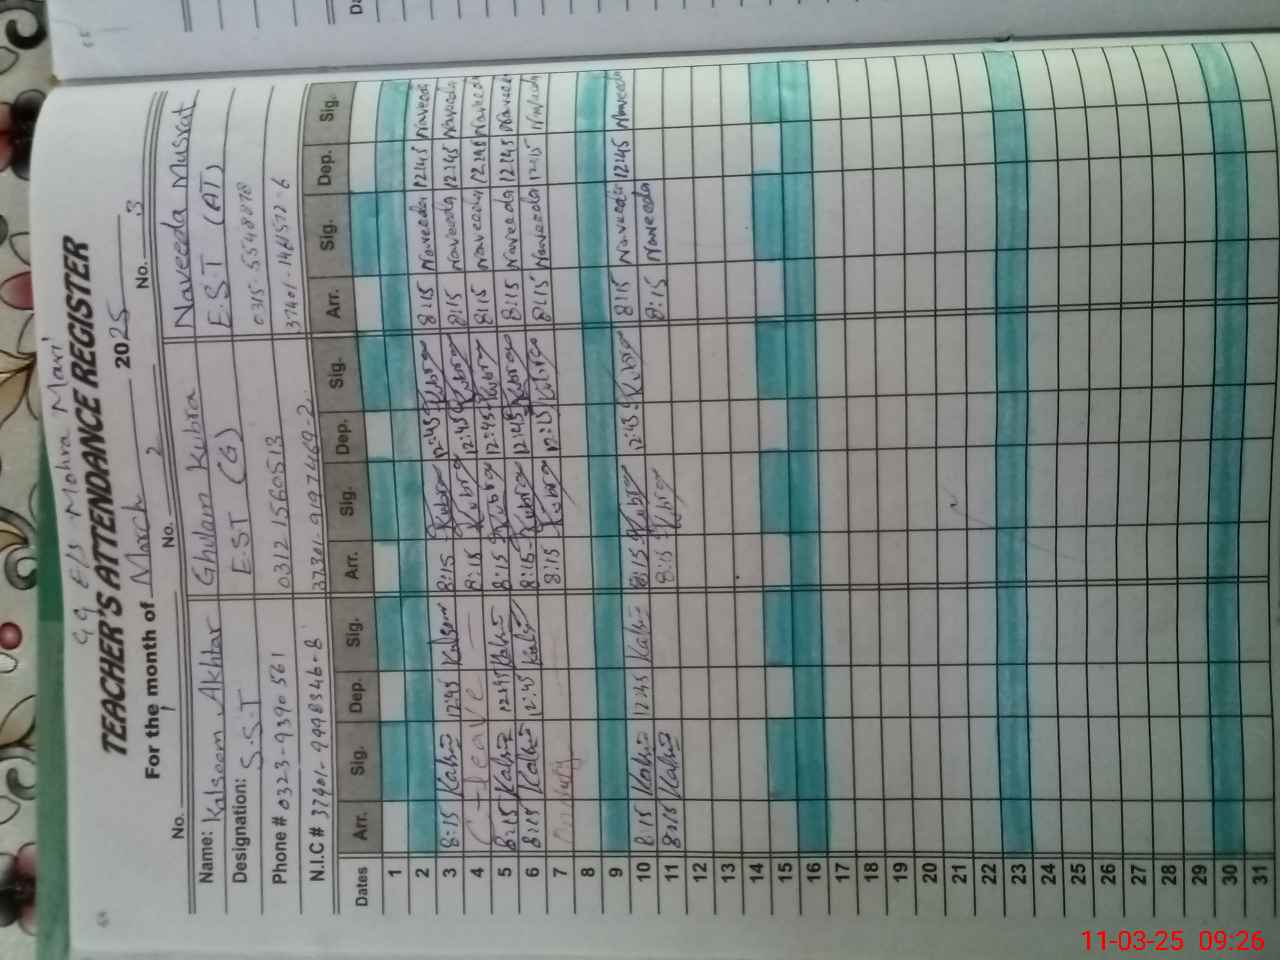 GG E/S Mohra Mari
TEACHER'S ATTENDANCE REGISTER
For the month of March 2025
No. No. 2 No. 3
Name: Kalsoom Akhtar Ghulam Kubra Naveeda Musrat
Designation: S.S.T E.S.T (G) E.S.T (AT)
Phone # 0323-9390561 0312 1560513 0315-5548878
N.I.C #
Dates Arr. Sig. Dep. Sig. Arr. Sig. Dep. Sig. Arr. Sig. Dep. Sig.
1
2
3 8:15 Kalsoom 12:45 Kalsoom 8:15 Kubra 12:45 Kubra 8:15 Naveeda 12:45 Naveeda
4 C-leave 8:15 Kubra 12:45 Kubra 8:15 Naveeda 12:45 Naveeda
5 8:15 Kalsoom 12:45 Kalsoom 8:15 Kubra 12:45 Kubra 8:15 Naveeda 12:45 Naveeda
6 8:15 Kalsoom 12:45 Kalsoom 8:15 Kubra 12:45 Kubra 8:15 Naveeda 12:45 Naveeda
7 8:15 Kubra 12:15 Kubra 8:15 Naveeda 12:15 Naveeda
8
9
10 8:15 Kalsoom 12:45 Kalsoom 8:15 Kubra 12:45 Kubra 8:15 Naveeda 12:45 Naveeda
11 8:15 Kalsoom 8:15 Kubra 8:15 Naveeda
12
13
14
15
16
17
18
19
20
21
22
23
24
25
26
27
28
29
30
31
11-03-25 09:26